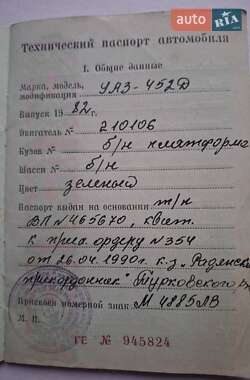 auto RIA
Технический паспорт автомобиля
I. Общие данные
Марка, модель,
модификация УАЗ-452Д
Выпуск 1982 г.
Двигатель № 210106
Кузов № б/н платформа
Шасси № б/н
Цвет зеленый
Паспорт выдан на основании т/п
ВЛ № 465670, квит.
к прих. ордеру № 354
от 26.04.1990г. к-з "Раденск
прикордонник" Турковского р-
Присвоен номерной знак М 4885 ЛВ
М. П.
ГЕ № 945824